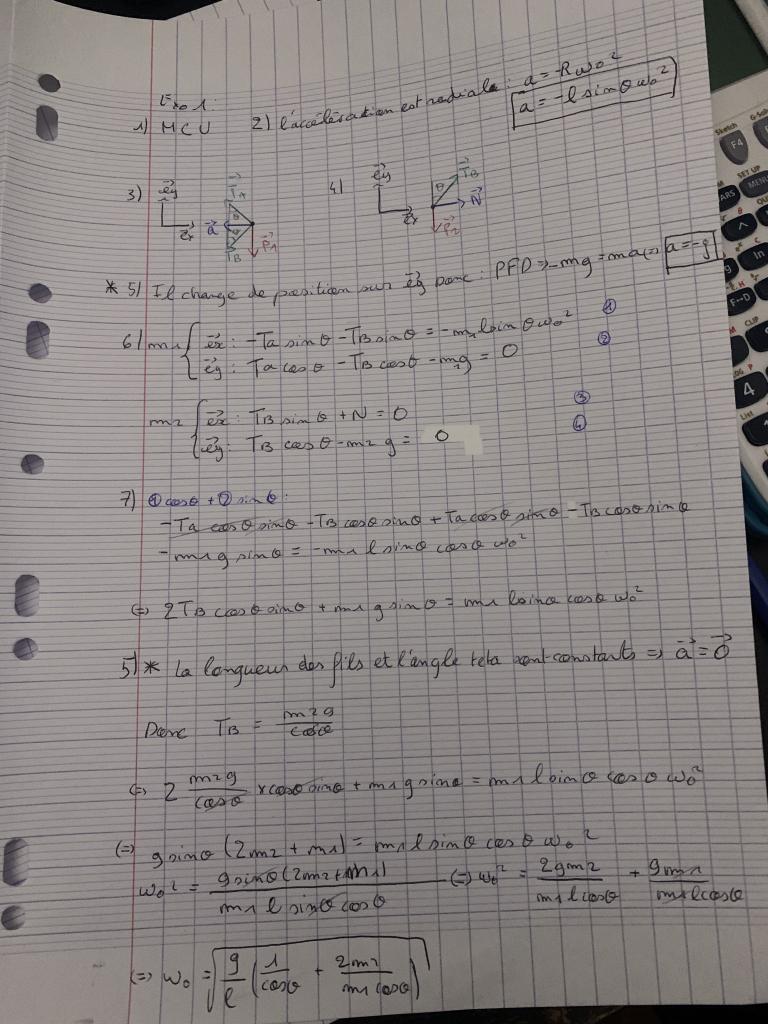 Exo 1:
1) MCU 2) l'accélération est radiale : a = -Rω₀²
a = -l sinθ ω₀²
3) e⃗y e⃗x a⃗ T⃗A θ θ T⃗B P⃗1 4) e⃗y e⃗x θ T⃗B N⃗ P⃗2
* 5) Il change de position sur e⃗y Donc : PFD => -mg = ma (=) a = -g
6) m1 { e⃗x : -Ta sinθ - TB sinθ = -m1 l sinθ ω₀² ①
e⃗y : Ta cosθ - TB cosθ - m1g = 0 ②
m2 { e⃗x : TB sinθ + N = 0 ③
e⃗y : TB cosθ - m2 g = 0 ④
7) ① cosθ + ② sinθ :
-Ta cosθ sinθ - TB cosθ sinθ + Ta cosθ sinθ - TB cosθ sinθ
- m1 g sinθ = -m1 l sinθ cosθ ω₀²
(=) 2 TB cosθ sinθ + m1 g sinθ = m1 l sinθ cosθ ω₀²
5) * La longueur des fils et l'angle teta sont constants => a⃗ = 0⃗
Donc TB = m2g / cosθ
(=) 2 m2g / cosθ × cosθ sinθ + m1 g sinθ = m1 l sinθ cosθ ω₀²
(=) g sinθ (2m2 + m1) = m1 l sinθ cosθ ω₀²
ω₀² = g sinθ (2m2 + m1) / m1 l sinθ cosθ (=) ω₀² = 2gm2 / m1 l cosθ + gm1 / m1 l cosθ
(=) ω₀ = √(g/l (1/cosθ + 2m2 / m1 cosθ))
Sketch
F4
G-Solv
SET UP
MENU
ARS
^
ln
F↔D
CLIP
4
List